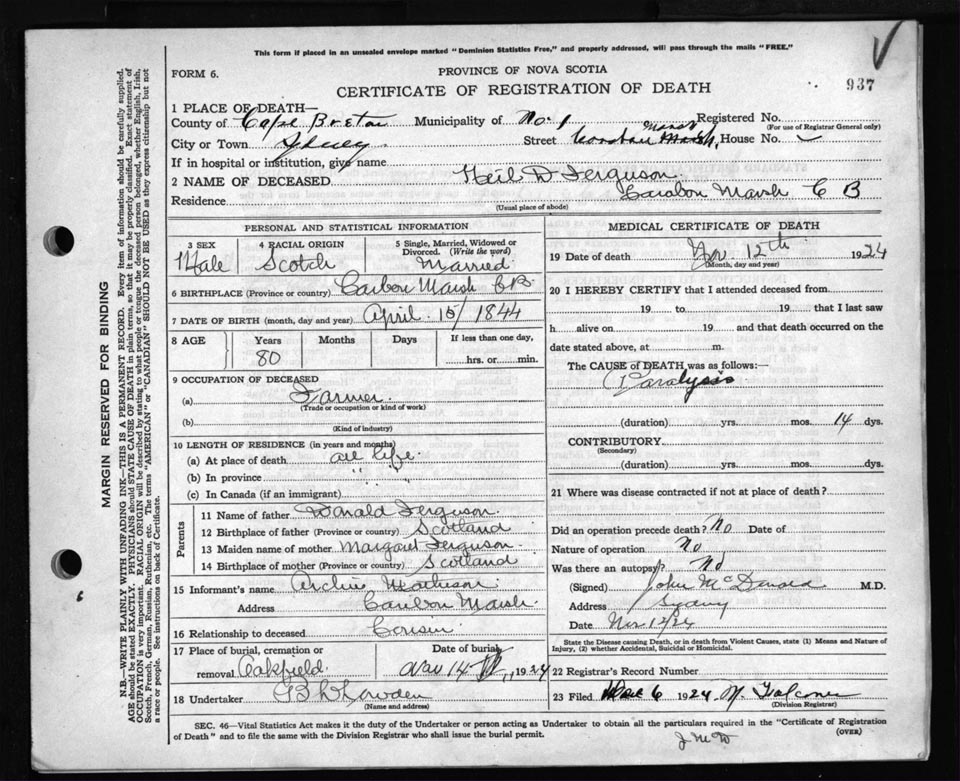 This form if placed in an unsealed envelope marked "Dominion Statistics Free," and properly addressed, will pass through the mails "FREE."
FORM 6.
PROVINCE OF NOVA SCOTIA
937
CERTIFICATE OF REGISTRATION OF DEATH
1 PLACE OF DEATH—
County of Cape Breton Municipality of No. 1 Registered No.
(For use of Registrar General only)
City or Town Sydney Street Marsh, House No.
If in hospital or institution, give name
2 NAME OF DECEASED Neil D Ferguson
Residence Caribou Marsh C B
(Usual place of abode)
PERSONAL AND STATISTICAL INFORMATION
3 SEX
Male
4 RACIAL ORIGIN
Scotch
5 Single, Married, Widowed or Divorced. (Write the word)
Married
6 BIRTHPLACE (Province or country) Caribou Marsh CB
7 DATE OF BIRTH (month, day and year) April 15/1844
8 AGE
Years
80
Months
Days
If less than one day,
hrs. or min.
9 OCCUPATION OF DECEASED
(a) Farmer
(Trade or occupation or kind of work)
(b)
(Kind of industry)
10 LENGTH OF RESIDENCE (in years and months)
(a) At place of death all life
(b) In province " "
(c) In Canada (if an immigrant)
Parents
11 Name of father Donald Ferguson
12 Birthplace of father (Province or country) Scotland
13 Maiden name of mother Margaret Ferguson
14 Birthplace of mother (Province or country) Scotland
15 Informant's name Archie Matheson
Address Caribou Marsh
16 Relationship to deceased Cousin
17 Place of burial, cremation or removal Oakfield
Date of burial
Nov 14 1924
18 Undertaker Lowden
(Name and address)
MEDICAL CERTIFICATE OF DEATH
19 Date of death Nov. 12th 1924
(Month, day and year)
20 I HEREBY CERTIFY that I attended deceased from
19 to 19 that I last saw
h alive on 19 and that death occurred on the
date stated above, at m.
The CAUSE of DEATH was as follows:—
Paralysis
(duration) yrs. mos. 14 dys.
CONTRIBUTORY
(Secondary)
(duration) yrs. mos. dys.
21 Where was disease contracted if not at place of death?
Did an operation precede death? No Date of
Nature of operation No
Was there an autopsy? No
(Signed) John McDonald M.D.
Address Sydney
Date Nov 12/24
State the Disease causing Death, or in death from Violent Causes, state (1) Means and Nature of Injury, (2) whether Accidental, Suicidal or Homicidal.
22 Registrar's Record Number
23 Filed Dec 6 1924 M. Falconer
(Division Registrar)
SEC. 46—Vital Statistics Act makes it the duty of the Undertaker or person acting as Undertaker to obtain all the particulars required in the "Certificate of Registration
of Death" and to file the same with the Division Registrar who shall issue the burial permit.
(OVER)
MARGIN RESERVED FOR BINDING
N.B.—WRITE PLAINLY WITH UNFADING INK—THIS IS A PERMANENT RECORD. Every item of information should be carefully supplied.
AGE should be stated EXACTLY. PHYSICIANS should STATE CAUSE OF DEATH in plain terms, so that it may be properly classified. Exact statement of
OCCUPATION is very important. RACIAL ORIGIN will be described by stating to what people or tongue the deceased person belonged, whether English, Irish,
Scotch, French, German, Russian, Ruthenian, etc. The terms "AMERICAN" or "CANADIAN" SHOULD NOT BE USED as they express citizenship but not
a race or people. See instructions on back of Certificate.